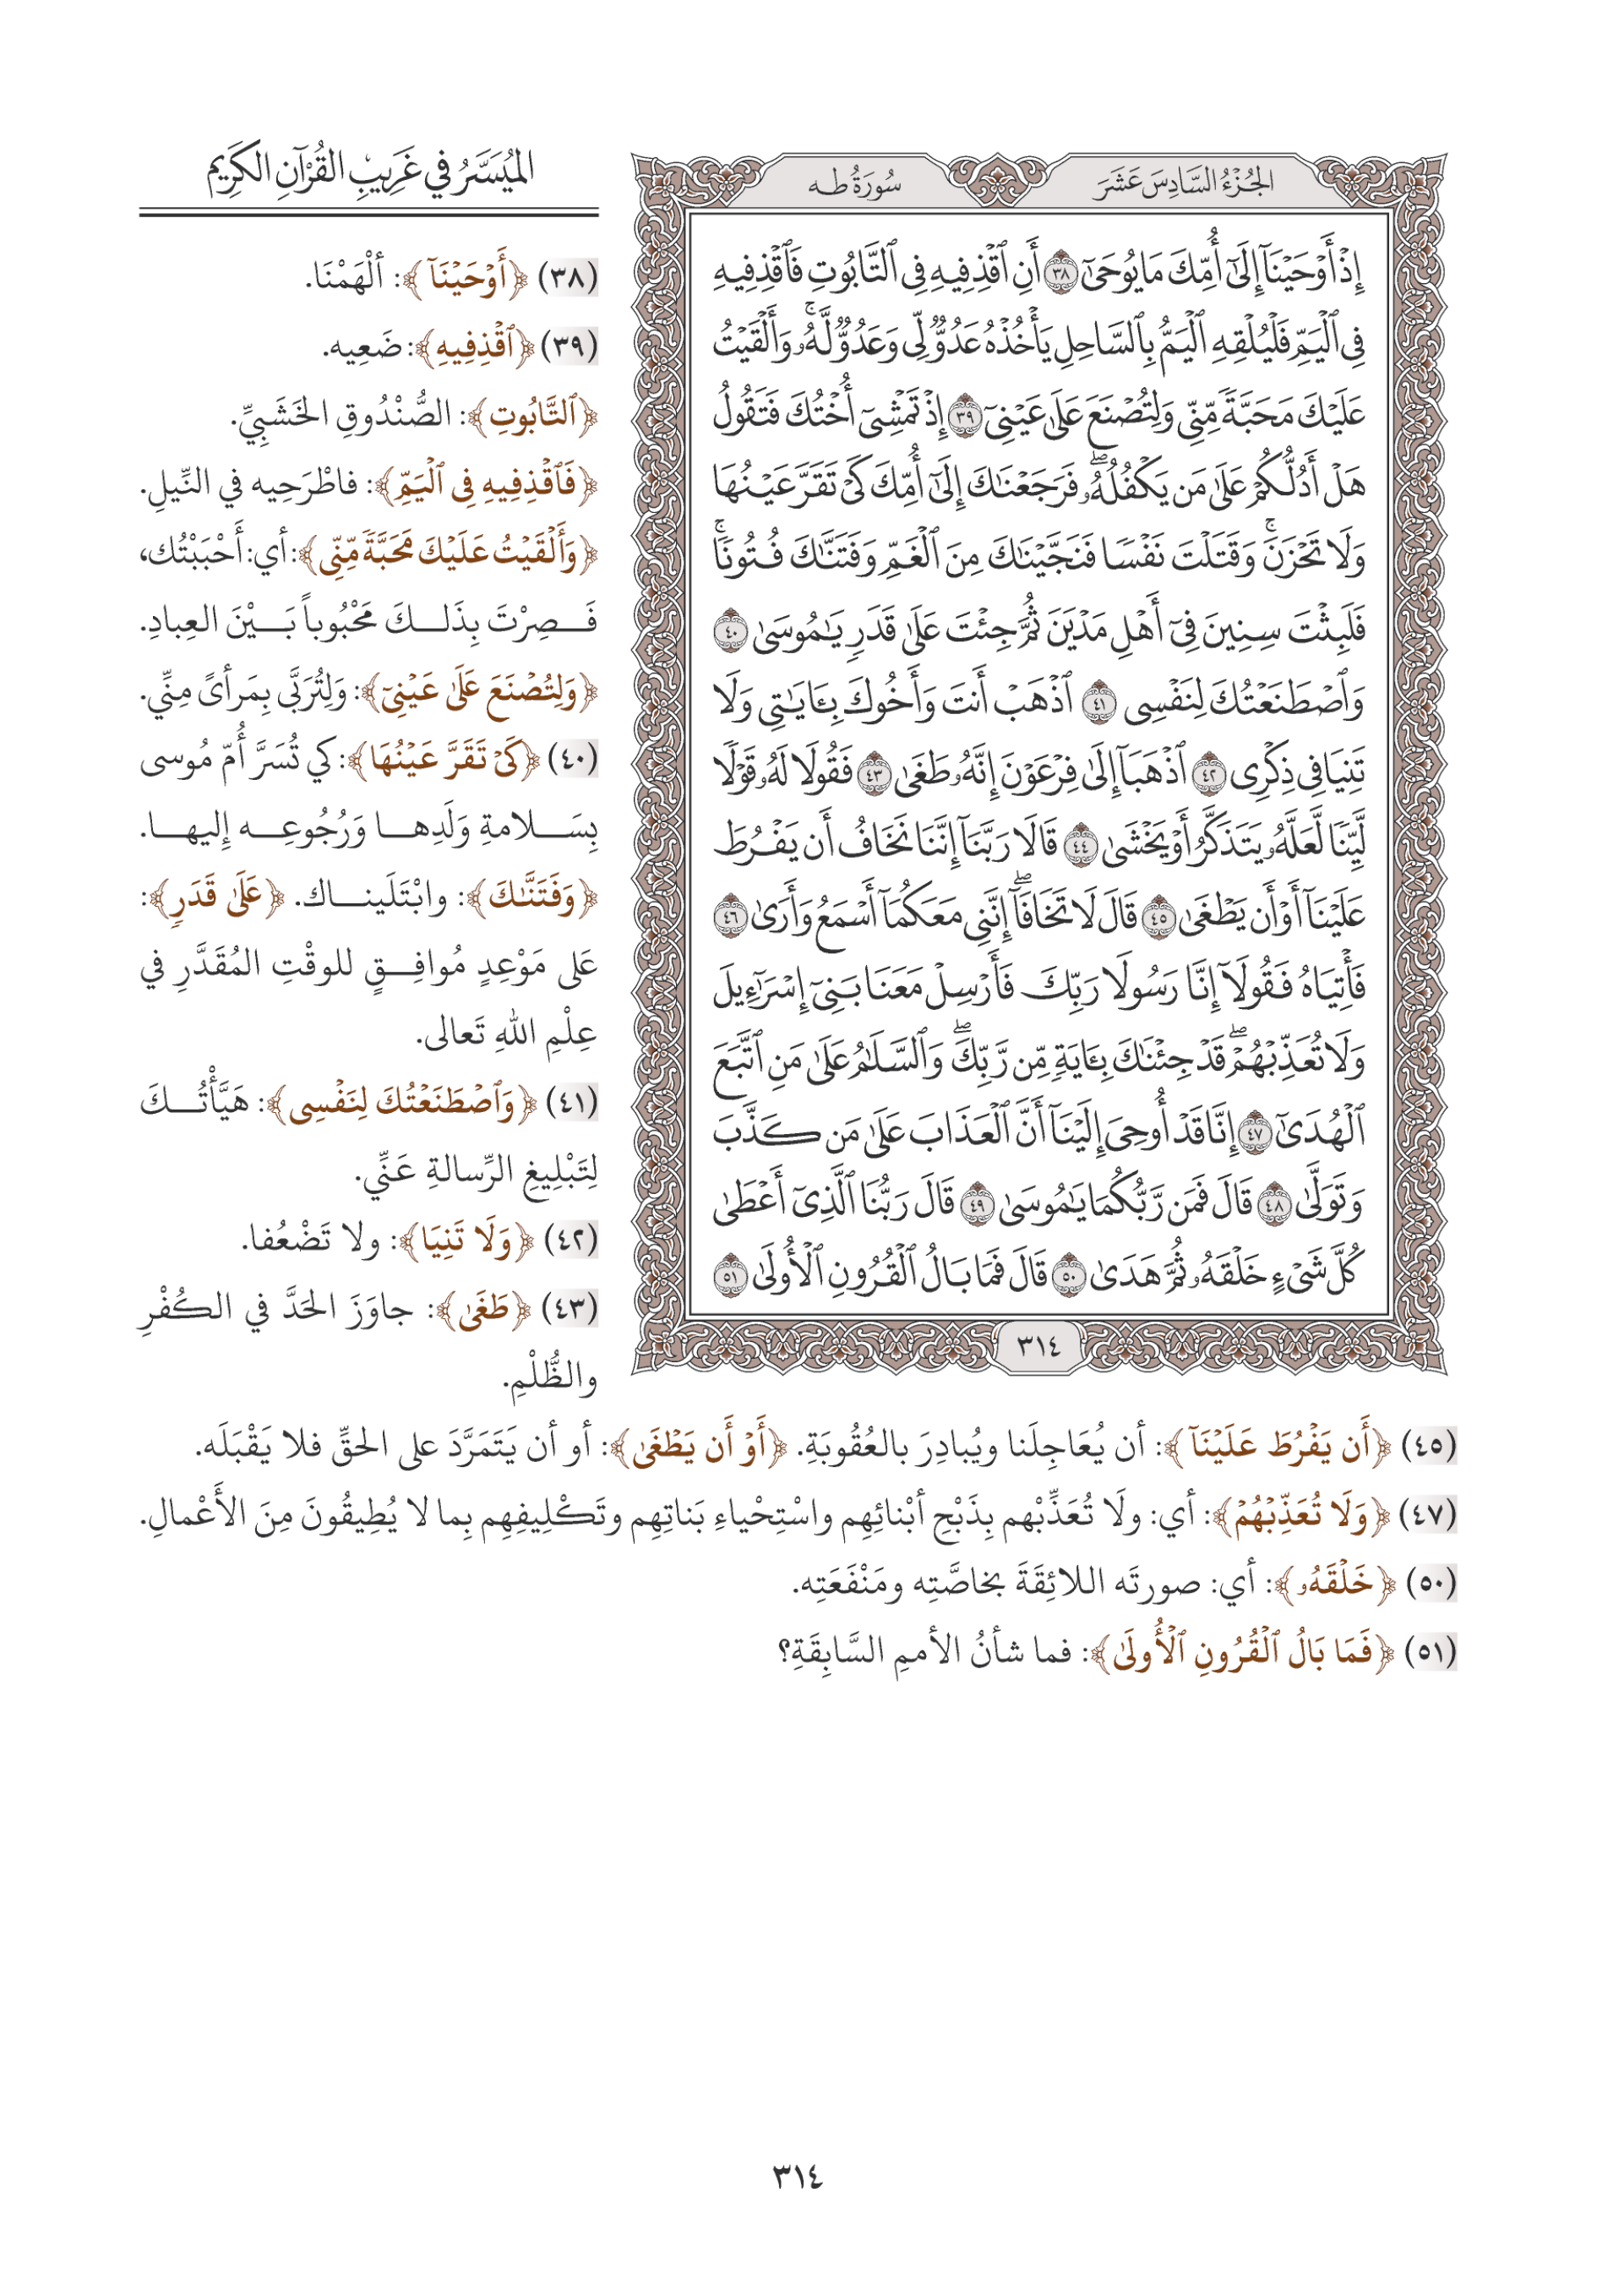 الجُزْءُ السَّادِسَ عَشَرَ
سُورَةُ طه
إِذۡ أَوۡحَيۡنَآ إِلَىٰٓ أُمِّكَ مَا يُوحَىٰٓ ٣٨ أَنِ ٱقۡذِفِيهِ فِي ٱلتَّابُوتِ فَٱقۡذِفِيهِ
فِي ٱلۡيَمِّ فَلۡيُلۡقِهِ ٱلۡيَمُّ بِٱلسَّاحِلِ يَأۡخُذۡهُ عَدُوّٞ لِّي وَعَدُوّٞ لَّهُۥۚ وَأَلۡقَيۡتُ
عَلَيۡكَ مَحَبَّةٗ مِّنِّي وَلِتُصۡنَعَ عَلَىٰ عَيۡنِيٓ ٣٩ إِذۡ تَمۡشِيٓ أُخۡتُكَ فَتَقُولُ
هَلۡ أَدُلُّكُمۡ عَلَىٰ مَن يَكۡفُلُهُۥۖ فَرَجَعۡنَٰكَ إِلَىٰٓ أُمِّكَ كَيۡ تَقَرَّ عَيۡنُهَا
وَلَا تَحۡزَنَۚ وَقَتَلۡتَ نَفۡسٗا فَنَجَّيۡنَٰكَ مِنَ ٱلۡغَمِّ وَفَتَنَّٰكَ فُتُونٗاۚ
فَلَبِثۡتَ سِنِينَ فِيٓ أَهۡلِ مَدۡيَنَ ثُمَّ جِئۡتَ عَلَىٰ قَدَرٖ يَٰمُوسَىٰ ٤٠
وَٱصۡطَنَعۡتُكَ لِنَفۡسِي ٤١ ٱذۡهَبۡ أَنتَ وَأَخُوكَ بِـَٔايَٰتِي وَلَا
تَنِيَا فِي ذِكۡرِي ٤٢ ٱذۡهَبَآ إِلَىٰ فِرۡعَوۡنَ إِنَّهُۥ طَغَىٰ ٤٣ فَقُولَا لَهُۥ قَوۡلٗا
لَّيِّنٗا لَّعَلَّهُۥ يَتَذَكَّرُ أَوۡ يَخۡشَىٰ ٤٤ قَالَا رَبَّنَآ إِنَّنَا نَخَافُ أَن يَفۡرُطَ
عَلَيۡنَآ أَوۡ أَن يَطۡغَىٰ ٤٥ قَالَ لَا تَخَافَآۖ إِنَّنِي مَعَكُمَآ أَسۡمَعُ وَأَرَىٰ ٤٦
فَأۡتِيَاهُ فَقُولَآ إِنَّا رَسُولَا رَبِّكَ فَأَرۡسِلۡ مَعَنَا بَنِيٓ إِسۡرَٰٓءِيلَ
وَلَا تُعَذِّبۡهُمۡۖ قَدۡ جِئۡنَٰكَ بِـَٔايَةٖ مِّن رَّبِّكَۖ وَٱلسَّلَٰمُ عَلَىٰ مَنِ ٱتَّبَعَ
ٱلۡهُدَىٰٓ ٤٧ إِنَّا قَدۡ أُوحِيَ إِلَيۡنَآ أَنَّ ٱلۡعَذَابَ عَلَىٰ مَن كَذَّبَ
وَتَوَلَّىٰ ٤٨ قَالَ فَمَن رَّبُّكُمَا يَٰمُوسَىٰ ٤٩ قَالَ رَبُّنَا ٱلَّذِيٓ أَعۡطَىٰ
كُلَّ شَيۡءٍ خَلۡقَهُۥ ثُمَّ هَدَىٰ ٥٠ قَالَ فَمَا بَالُ ٱلۡقُرُونِ ٱلۡأُولَىٰ ٥١
٣١٤
المُيَسَّرُ في غَرِيبِ القُرْآنِ الكَرِيم
(٣٨) ﴿أَوۡحَيۡنَآ﴾: أَلْهَمْنَا.
(٣٩) ﴿ٱقۡذِفِيهِ﴾: ضَعِيه.
﴿ٱلتَّابُوتِ﴾: الصُّنْدُوقِ الخَشَبِيِّ.
﴿فَٱقۡذِفِيهِ فِي ٱلۡيَمِّ﴾: فاطْرَحِيه في النِّيلِ.
﴿وَأَلۡقَيۡتُ عَلَيۡكَ مَحَبَّةٗ مِّنِّي﴾: أي: أَحْبَبْتُك،
فَصِرْتَ بِذَلكَ مَحْبُوباً بَيْنَ العِبادِ.
﴿وَلِتُصۡنَعَ عَلَىٰ عَيۡنِيٓ﴾: وَلِتُرَبَّى بِمَرأىً مِنِّي.
(٤٠) ﴿كَيۡ تَقَرَّ عَيۡنُهَا﴾: كي تُسَرَّ أُمّ مُوسى
بِسَلامةِ وَلَدِها وَرُجُوعِه إليها.
﴿وَفَتَنَّٰكَ﴾: وابْتَلَيناك. ﴿عَلَىٰ قَدَرٖ﴾:
عَلى مَوْعِدٍ مُوافِقٍ للوقْتِ المُقَدَّرِ في
عِلْمِ اللهِ تَعالى.
(٤١) ﴿وَٱصۡطَنَعۡتُكَ لِنَفۡسِي﴾: هَيَّأْتُكَ
لِتَبْلِيغِ الرِّسالةِ عَنِّي.
(٤٢) ﴿وَلَا تَنِيَا﴾: ولا تَضْعُفا.
(٤٣) ﴿طَغَىٰ﴾: جاوَزَ الحَدَّ في الكُفْرِ
والظُّلْمِ.
(٤٥) ﴿أَن يَفۡرُطَ عَلَيۡنَآ﴾: أن يُعَاجِلَنا ويُبادِرَ بالعُقُوبَةِ. ﴿أَوۡ أَن يَطۡغَىٰ﴾: أو أن يَتَمَرَّدَ على الحقِّ فلا يَقْبَلَه.
(٤٧) ﴿وَلَا تُعَذِّبۡهُمۡ﴾: أي: ولَا تُعَذِّبْهم بِذَبْحِ أبْنائِهِم واسْتِحْياءِ بَناتِهِم وتَكْلِيفِهِم بِما لا يُطِيقُونَ مِنَ الأَعْمالِ.
(٥٠) ﴿خَلۡقَهُۥ﴾: أي: صورتَه اللائِقَةَ بخاصَّتِه ومَنْفَعَتِه.
(٥١) ﴿فَمَا بَالُ ٱلۡقُرُونِ ٱلۡأُولَىٰ﴾: فما شأنُ الأممِ السَّابِقَةِ؟
٣١٤